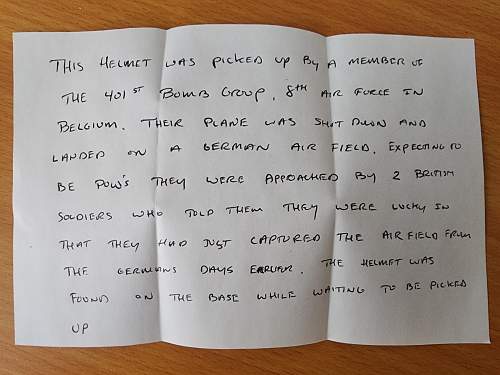 THIS HELMET WAS PICKED UP BY A MEMBER OF
THE 401ST BOMB GROUP, 8TH AIR FORCE IN
BELGIUM. THEIR PLANE WAS SHOT DOWN AND
LANDED ON A GERMAN AIR FIELD. EXPECTING TO
BE POW'S THEY WERE APPOACHED BY 2 BRITISH
SOLDIERS WHO TOLD THEM THEY WERE LUCKY IN
THAT THEY HAD JUST CAPTURED THE AIRFIELD FROM
THE GERMANS DAYS EARLIER. THE HELMET WAS
FOUND ON THE BASE WHILE WAITING TO BE PICKED
UP